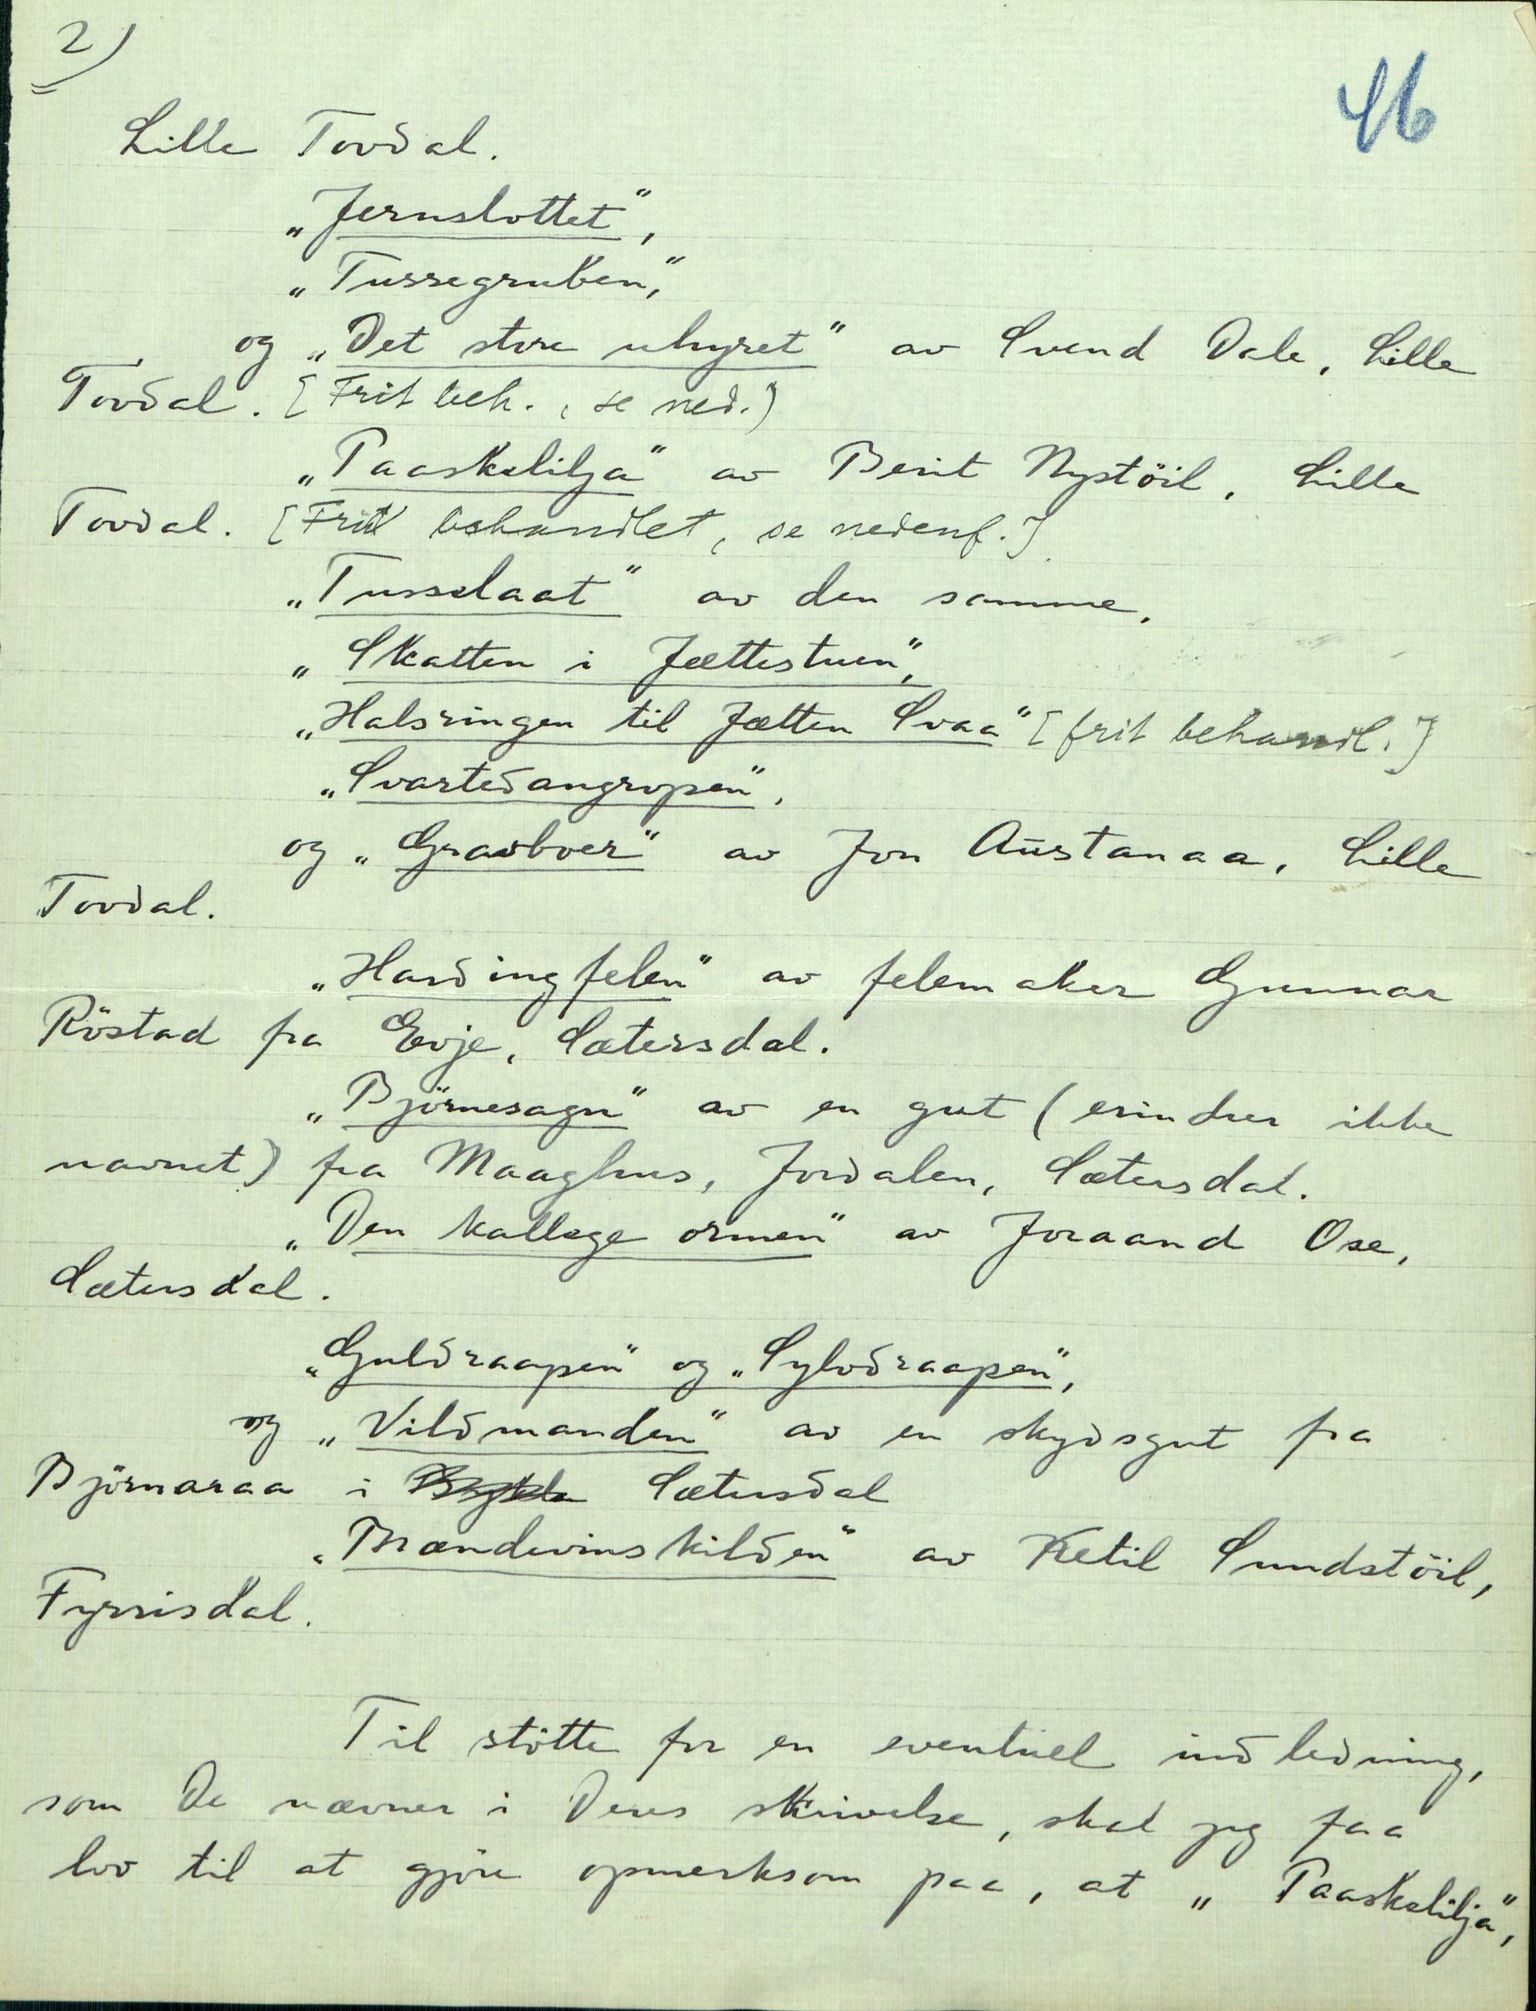 2)
46
Lille Tovdal.
„Jernslottet",
„Tussegruben",
og „Det store uhyret" av Svend Dale, Lille
Tovdal. [Frit beh., se ned.)
„Paaskelilja" av Berit Nystöil, Lille
Tovdal. [Frit behandlet, se nedenf.]
„Tusselaat" av den samme.
„Skatten i Jættestuen",
„Halsringen til Jætten Svaa" [frit behandl.]
„Svartedangropen",
og „Gravboer" av Jon Austanaa, Lille
Tovdal.
„Hardingfelen" av felemaker Gunnar
Röstad fra Evje, Sætersdal.
„Björnesagn" av en gut (erindrer ikke
navnet) fra Maaghus, Jordalen, Sætersdal.
„Den kallege ormen" av Joraand Ose,
Sætersdal.
„Guldraapen" og „Sylvdraapen",
og „Vildmanden" av en skydsgut fra
Björnaraa i Sætersdal
„Brændevinskilden" av Ketil Sundstöil,
Fyrrisdal.
Til stötte for en eventuel indledning,
som De nævner i Deres skrivelse, skal jeg faa
lov til at gjöre opmerksom paa, at „Paaskelilja",